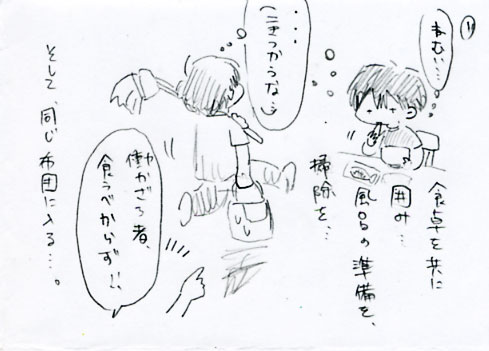 ねむい…
食卓を共に
囲み…
風呂の準備を、
掃除を…
‥‥
(こきつかうな…)
働かざる者、
食うべからず!!
そして、同じ布団に入る…。